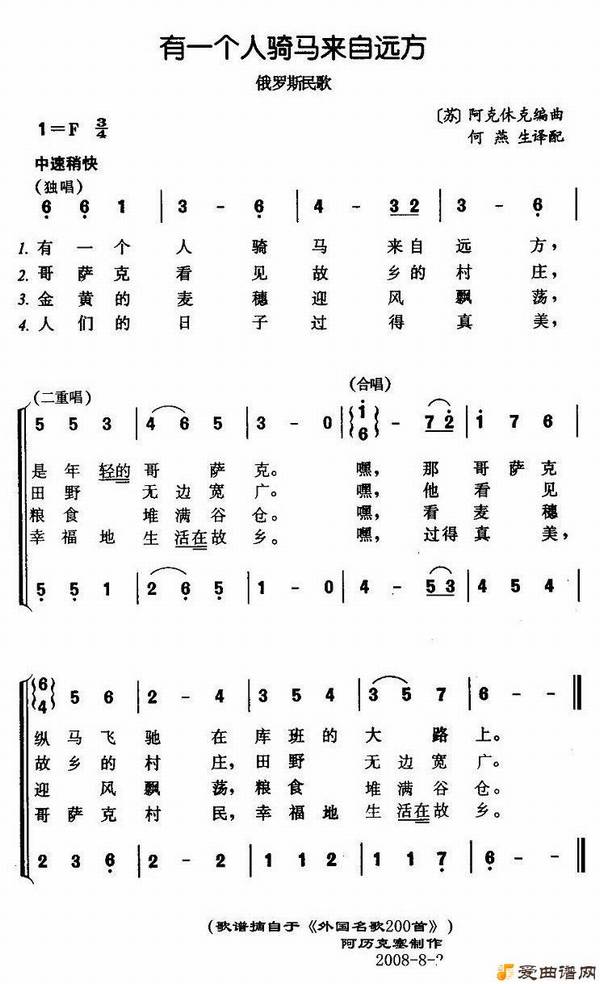 有一个人骑马来自远方
俄罗斯民歌
〔苏〕阿克休克编曲
1=F 3/4
何 燕 生译配
中速稍快
（独唱）
6 6 1 | 3 - 6 | 4 - 3 2 | 3 - 6 |
1. 有 一 个 人 骑 马 来自 远 方，
2. 哥 萨 克 看 见 故 乡的 村 庄，
3. 金 黄 的 麦 穗 迎 风 飘 荡，
4. 人 们 的 日 子 过 得 真 美，
（二重唱） （合唱）
5 5 3 | 4 6 5 | 3 - 0 | i 6 - 7 2 | 1 7 6 |
是 年 轻的 哥 萨 克。 嘿， 那 哥 萨 克
田 野 无 边 宽 广。 嘿， 他 看 见
粮 食 堆 满 谷 仓。 嘿， 看 麦 穗
幸 福 地 生 活在 故 乡。 嘿， 过得 真 美，
5 5 1 | 2 6 5 | 1 - 0 | 4 - 5 3 | 4 5 4 |
6 4 5 6 | 2 - 4 | 3 2 1 | 5 5 4 | 3 5 7 | 6 - - ‖
纵 马 飞 驰 在 库 班 的 大 路 上。
故 乡 的 村 庄，田 野 无 边 宽 广。
迎 风 飘 荡，粮 食 堆 满 谷 仓。
哥 萨 克 村 民，幸 福 地 生 活在 故 乡。
2 3 6 | 2 - 2 | 1 1 2 | 1 1 2 | 1 1 7 | 6 - - ‖
（歌谱摘自于《外国名歌200首》）
阿历克塞制作
2008-8-
爱曲谱网